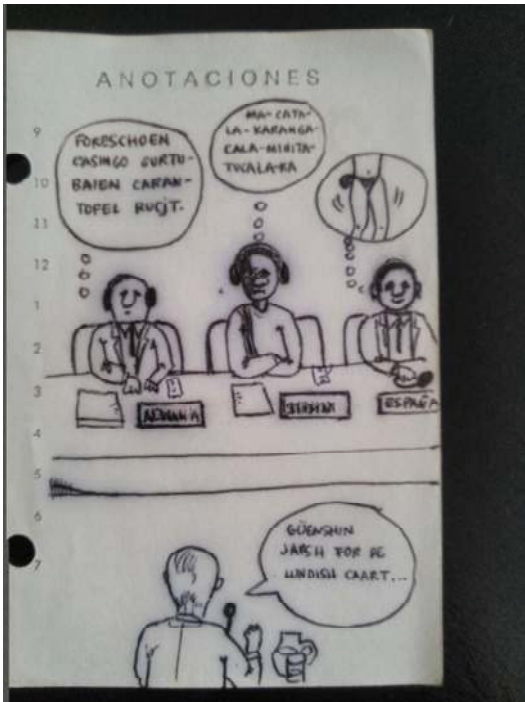 ANOTACIONES
9
10
11
12
1
2
3
4
5
6
7
FORESCHOEN
GURTU-
BAIEN CARAN-
TOFEL
MA-CATA-
LA-KARANGA-
CALA-MINITA-
TUCALA-RA
ALEMANIA
ESPAÑA
GÜENSHIN
JARSH FOR DE
LINDISH CAART...